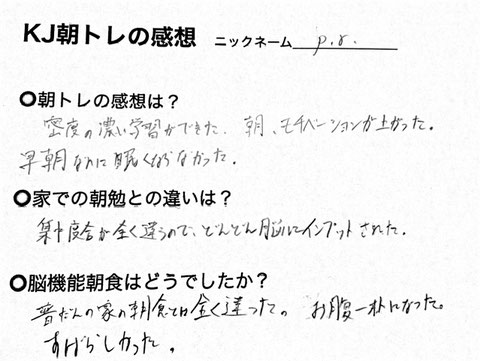 KJ朝トレの感想 ニックネーム p.r.
○朝トレの感想は？
密度の濃い学習ができた。朝、モチベーションが上がった。
早朝なのに眠くならなかった。
○家での朝勉との違いは？
集中度合が全く違うので、どんどん脳にインプットされた。
○脳機能朝食はどうでしたか？
普だんの家の朝食とは全く違った。お腹一杯になった。
すばらしかった。